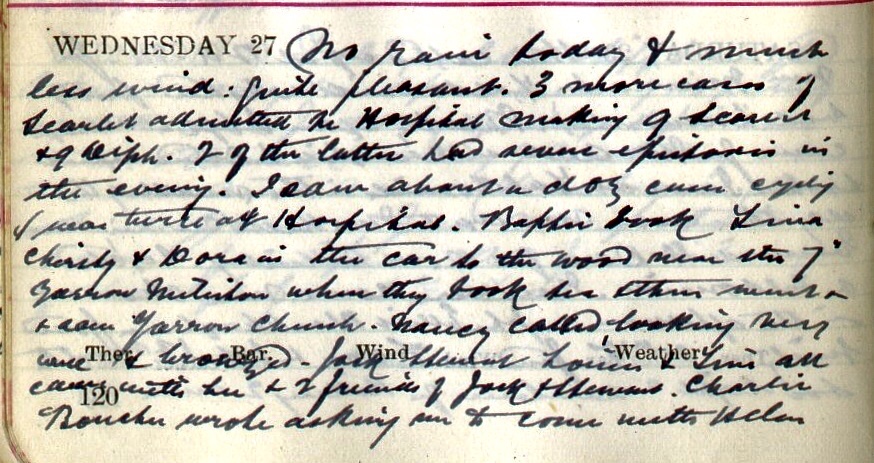 WEDNESDAY 27 No rain today & much
less wind: quite pleasant. 3 more cases of
Scarlet admitted to Hospital making 9 Scarlet
& 9 Diph. 2 of the latter had severe epistaxis in
the evening. I saw about a doz cases
& was twice at Hospital. took Tina
Chirsty & Dora in the car to the wood near the 7th
Yarrow when they took tea
& saw Yarrow Church. Nancy called looking very
well & bronzed. Jack Stewart & Tina all
Ther. Bar. Wind Weather
came with her & 2 friends of Jack Charlie
120
Boucher wrote asking me to come with Helen